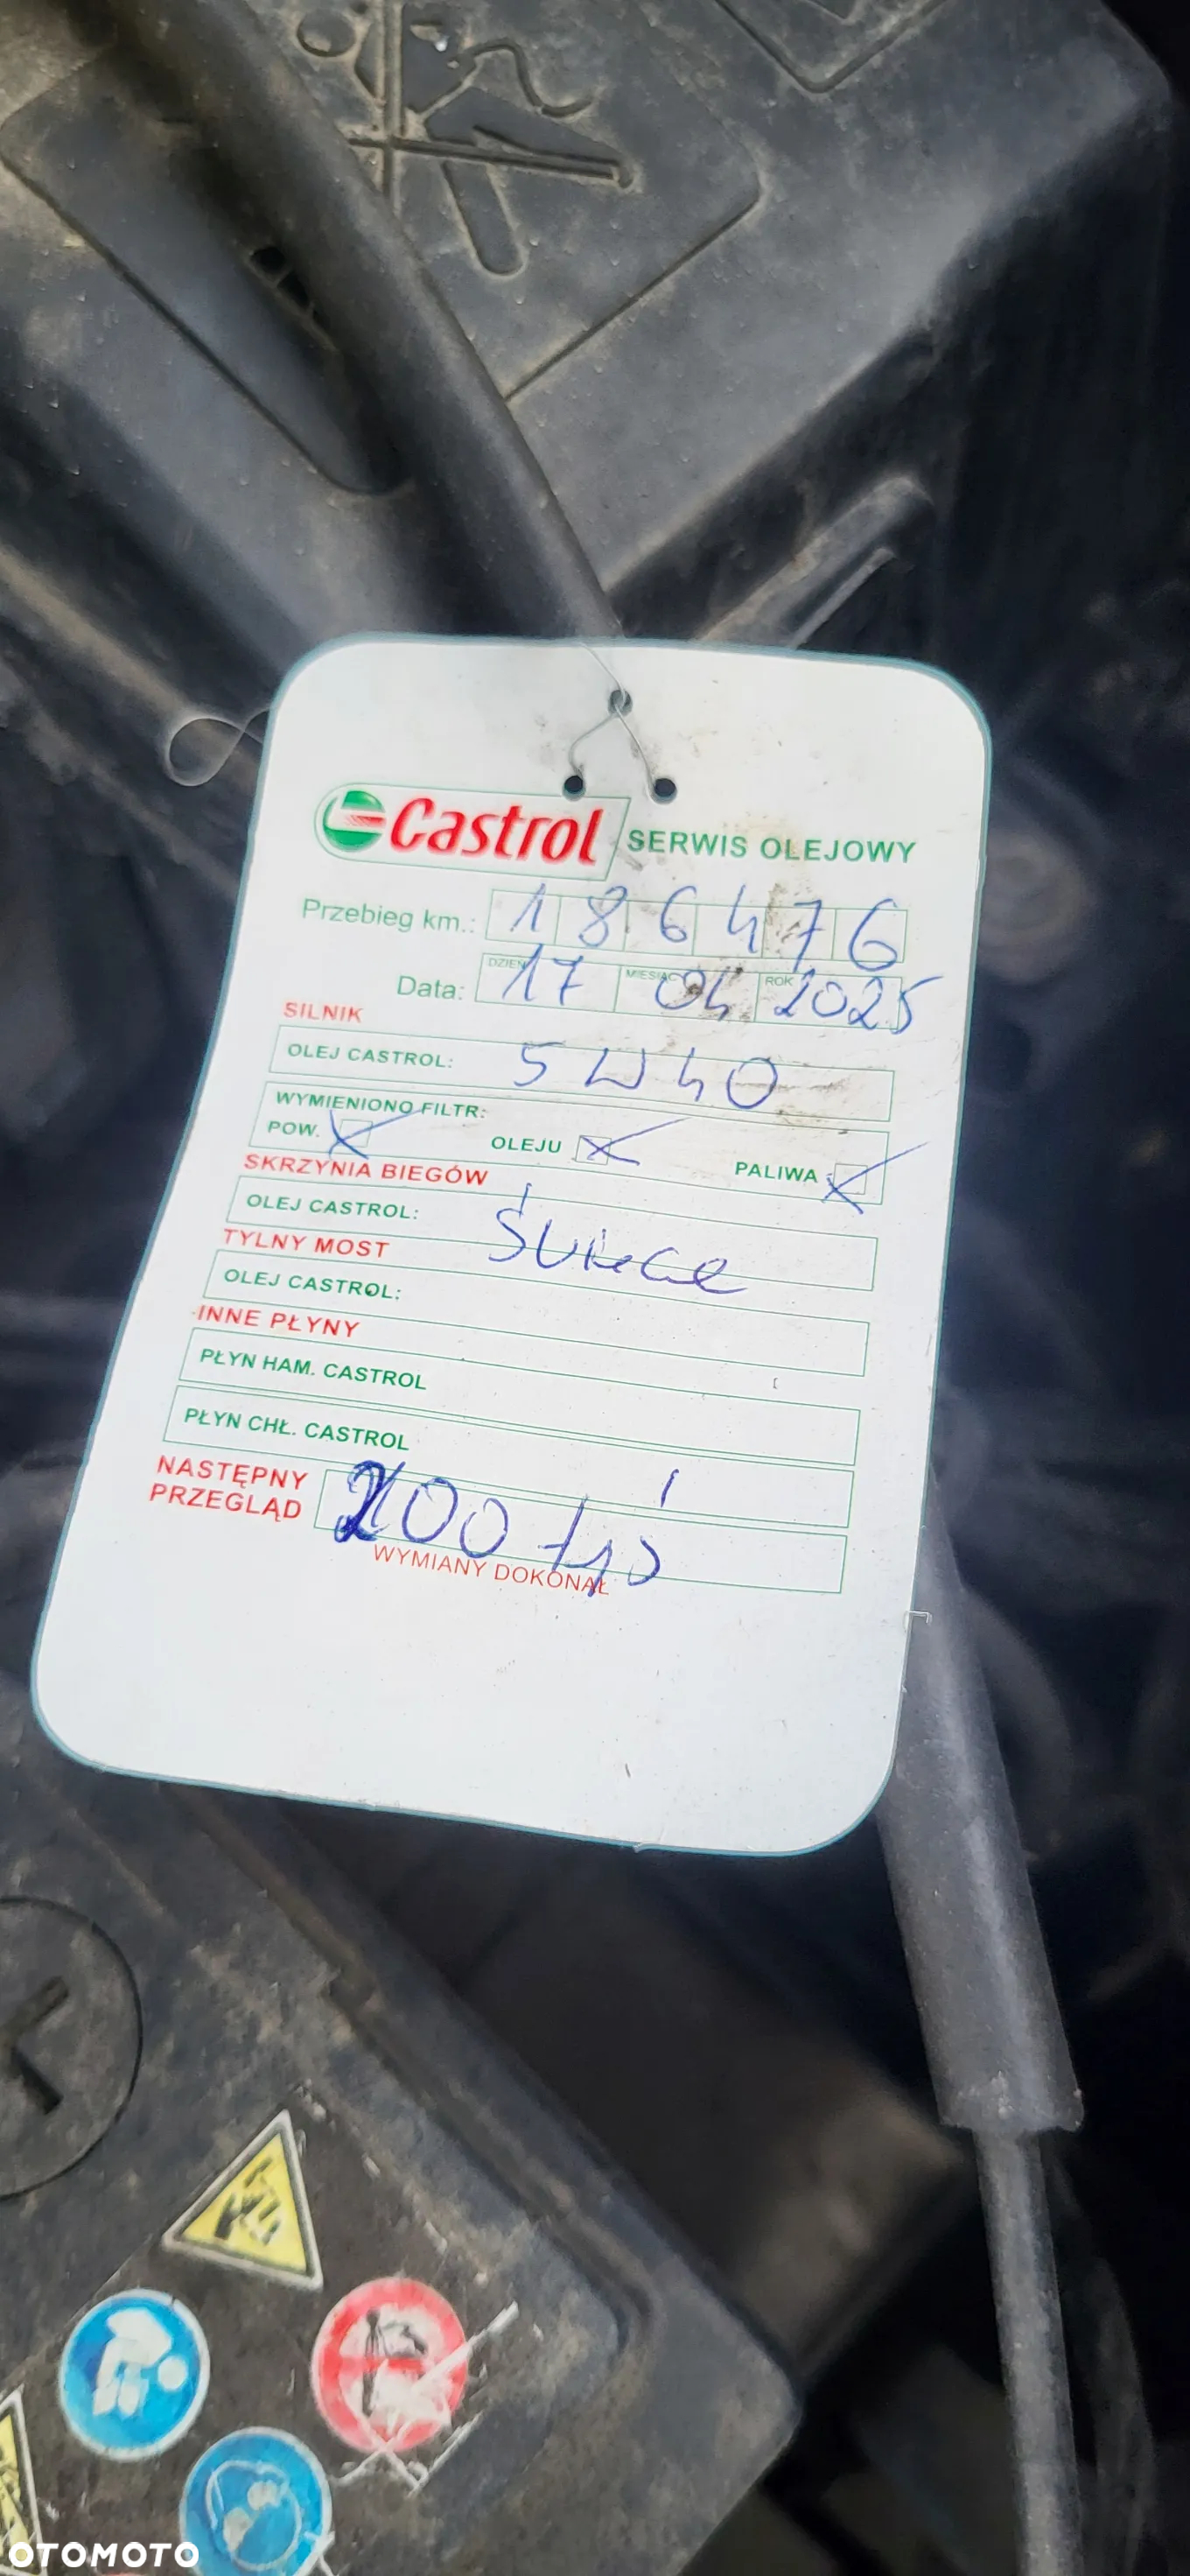 Castrol SERWIS OLEJOWY
Przebieg km.: 186476
Data: DZIEŃ 17 MIESIĄC 04 ROK 2025
SILNIK
OLEJ CASTROL: 5W40
WYMIENIONO FILTR:
POW. OLEJU PALIWA
SKRZYNIA BIEGÓW
OLEJ CASTROL: Świece
TYLNY MOST
OLEJ CASTROL:
INNE PŁYNY
PŁYN HAM. CASTROL
PŁYN CHŁ. CASTROL
NASTĘPNY PRZEGLĄD 200 tyś
WYMIANY DOKONAŁ
OTOMOTO